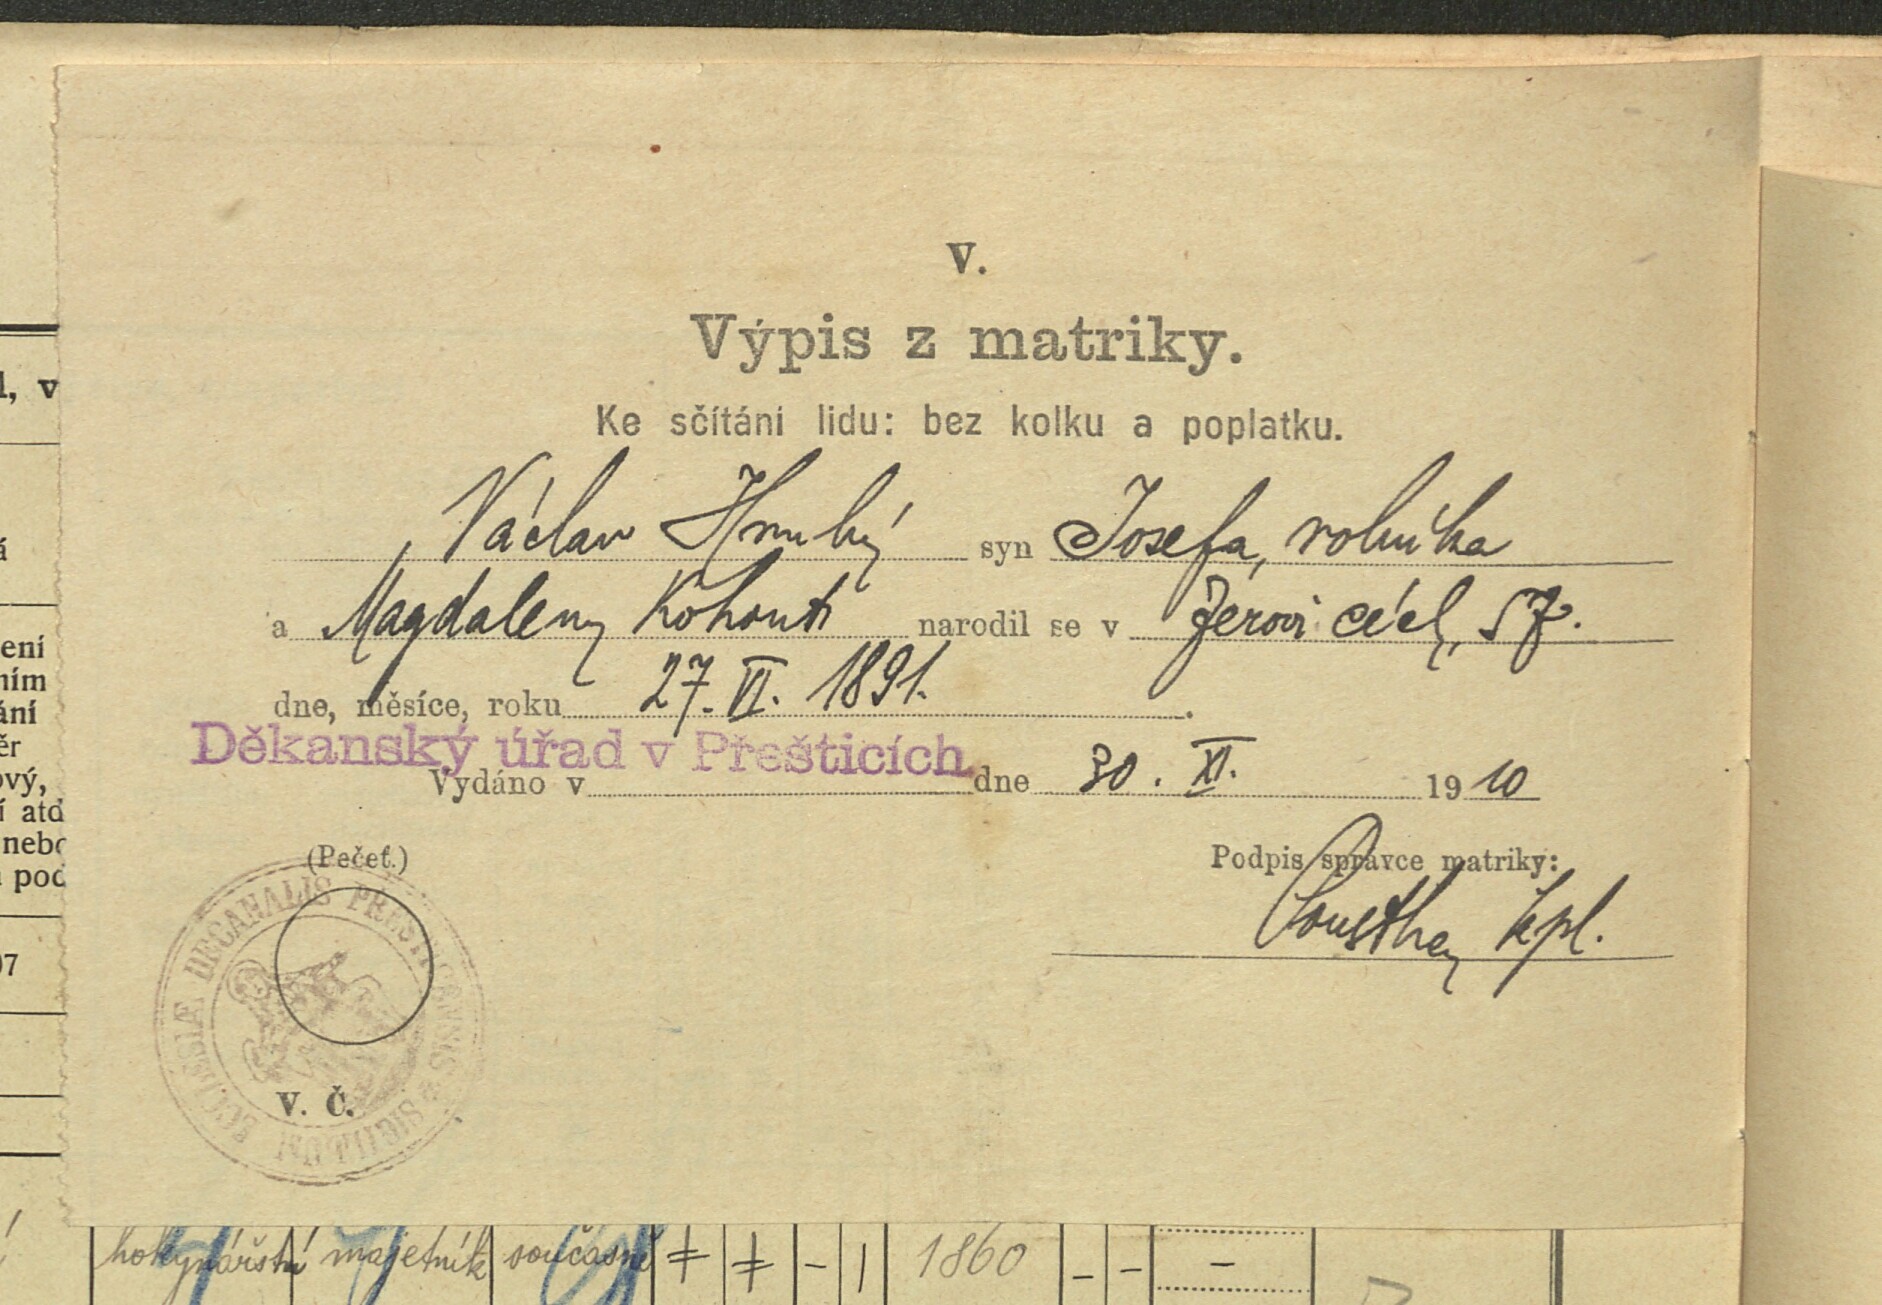 V.
Výpis z matriky.
Ke sčítání lidu: bez kolku a poplatku.
Václav Hrubý syn Josefa, rolníka
a Magdaleny Kohout narodil se v Žerovicích, 57.
dne, měsíce, roku 27. VI. 1891.
Děkanský úřad v Přešticích
Vydáno v dne 30. XI. 1910
(Pečeť.)
Podpis správce matriky:
kpl.
ECCLESIÆ DECANALIS SIGILLUM
V. Č.
l, v
á
ení
ním
ání
ěr
ový,
í atd
nebo
pod
07
hokynářství majetník současně + + - 1 1860 - - -